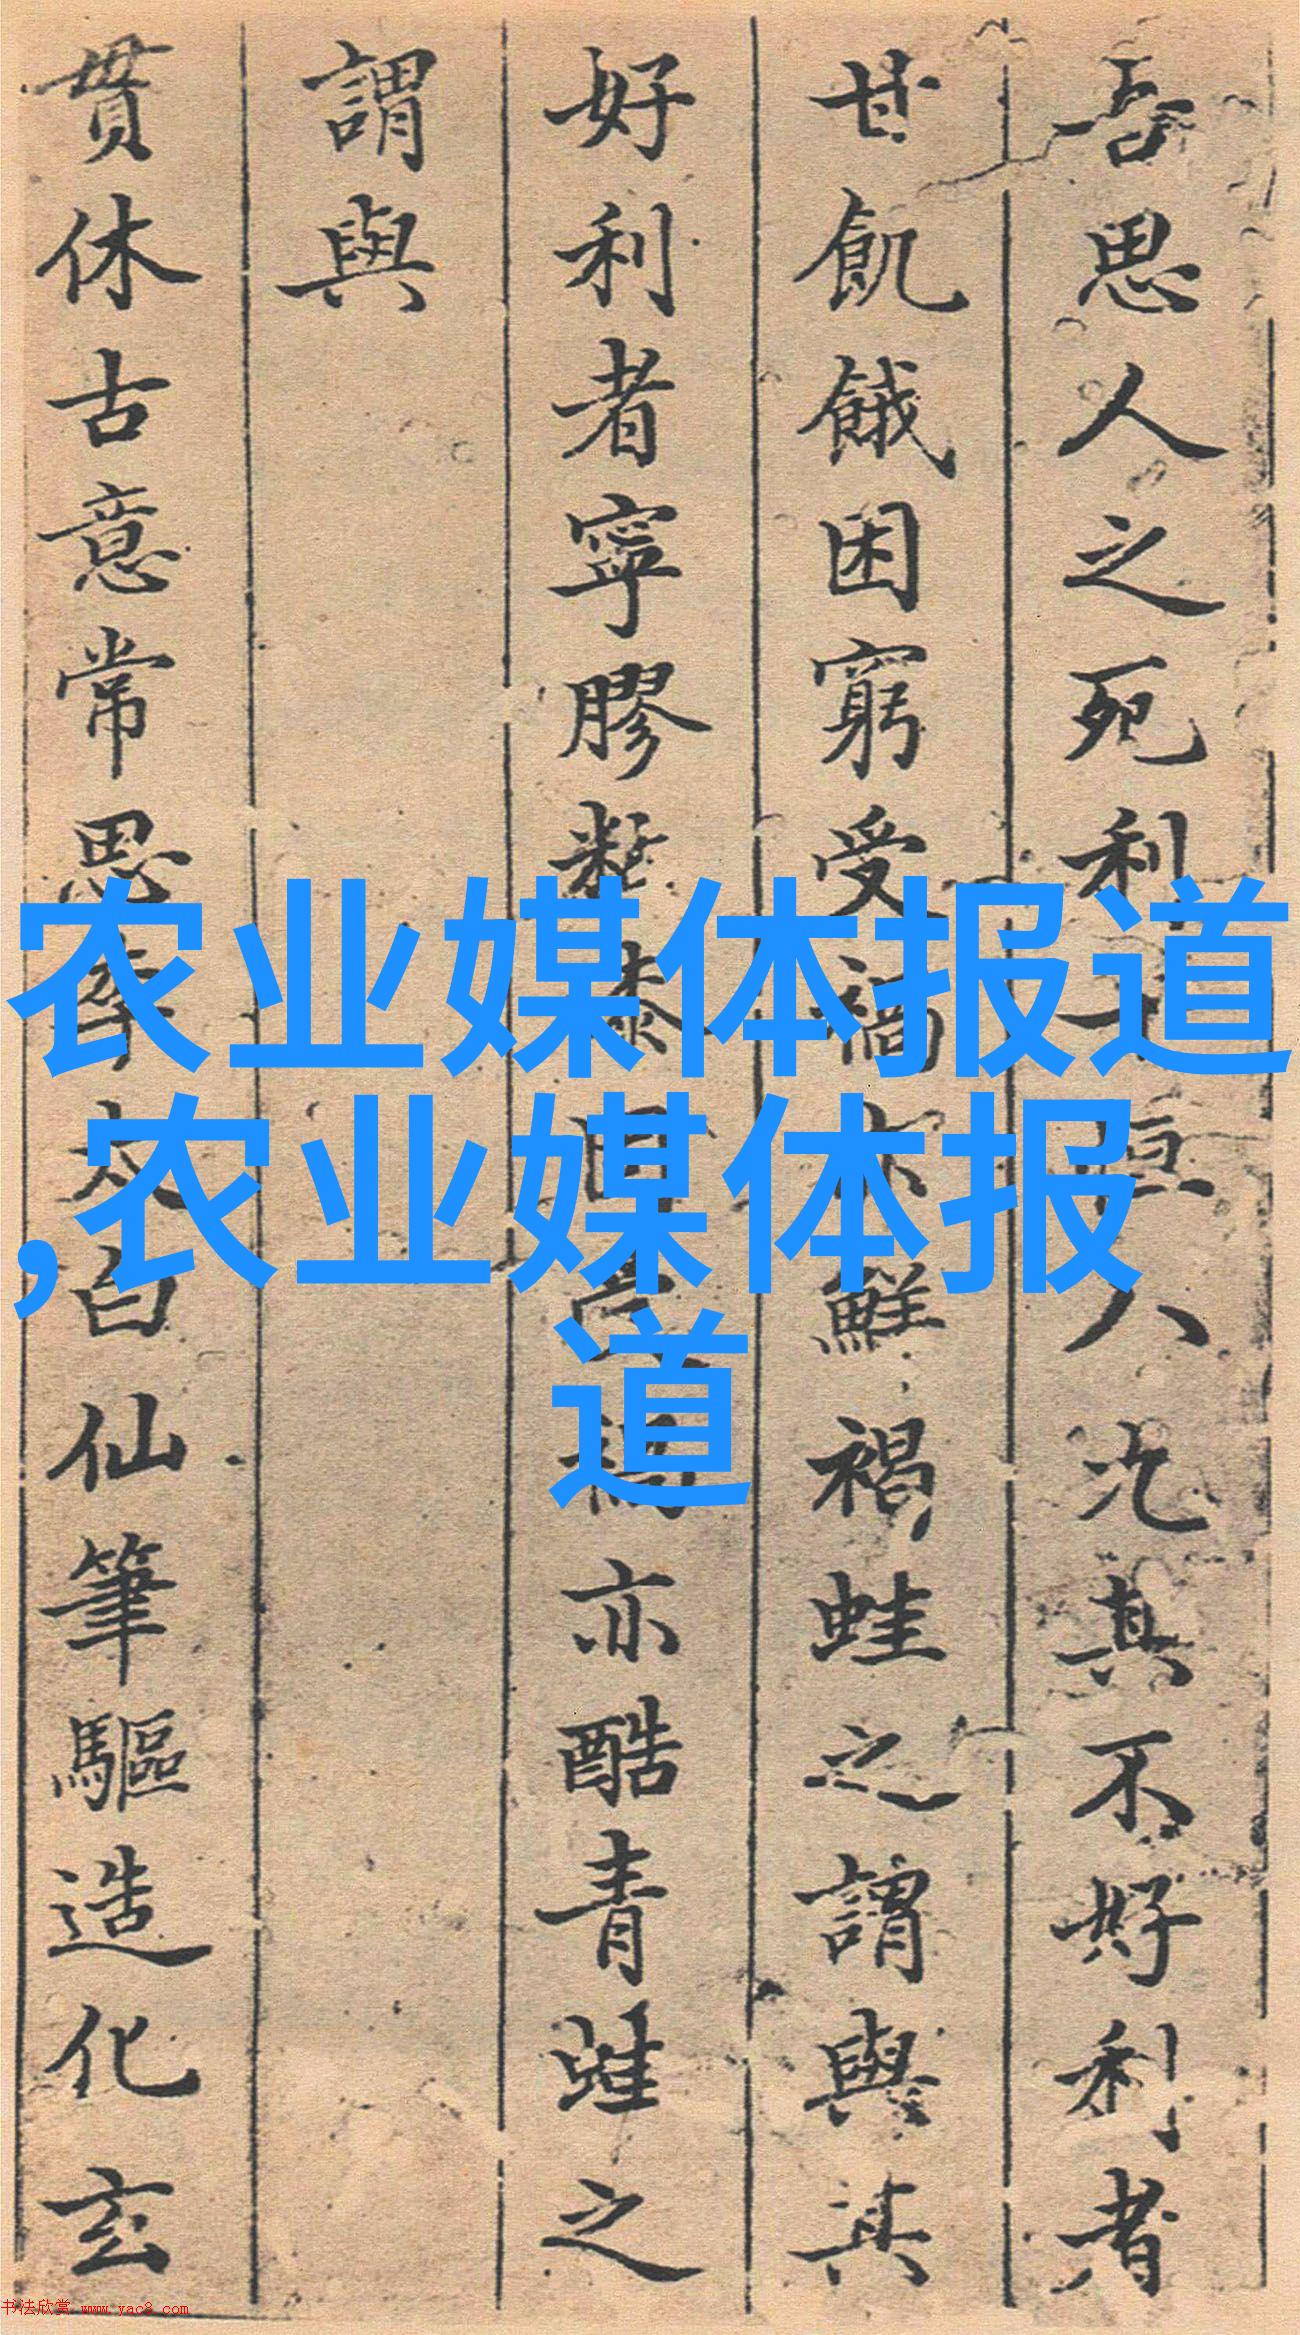 吾思人之死利
恒人汔其不好利者
甘飢餓困窮受禍亦鮮褐蛙之謂與其
好利者寧膠
亦酷青蛙之
謂與
貫休古意常思李太白仙筆驅造化玄
农业媒体报道
,农业媒体报
道
书法欣赏 www.yac8.com